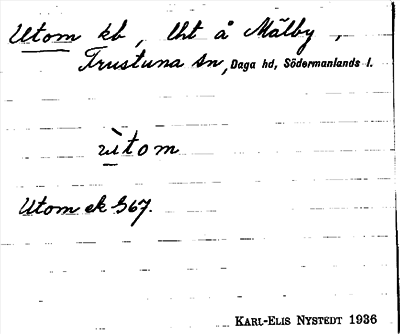 Utom kb, lht å Mälby,
Frustuna sn, Daga hd, Södermanlands l.
ùtom
Utom ek S67.
KARL-ELIS NYSTEDT 1936